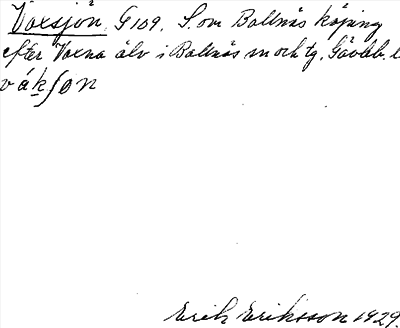 Voxsjön. G 109. S. om Bollnäs köping
efter Voxna älv i Bollnäs sn och tg. Gävleb. l
våkʃon
Erik Eriksson 1929.